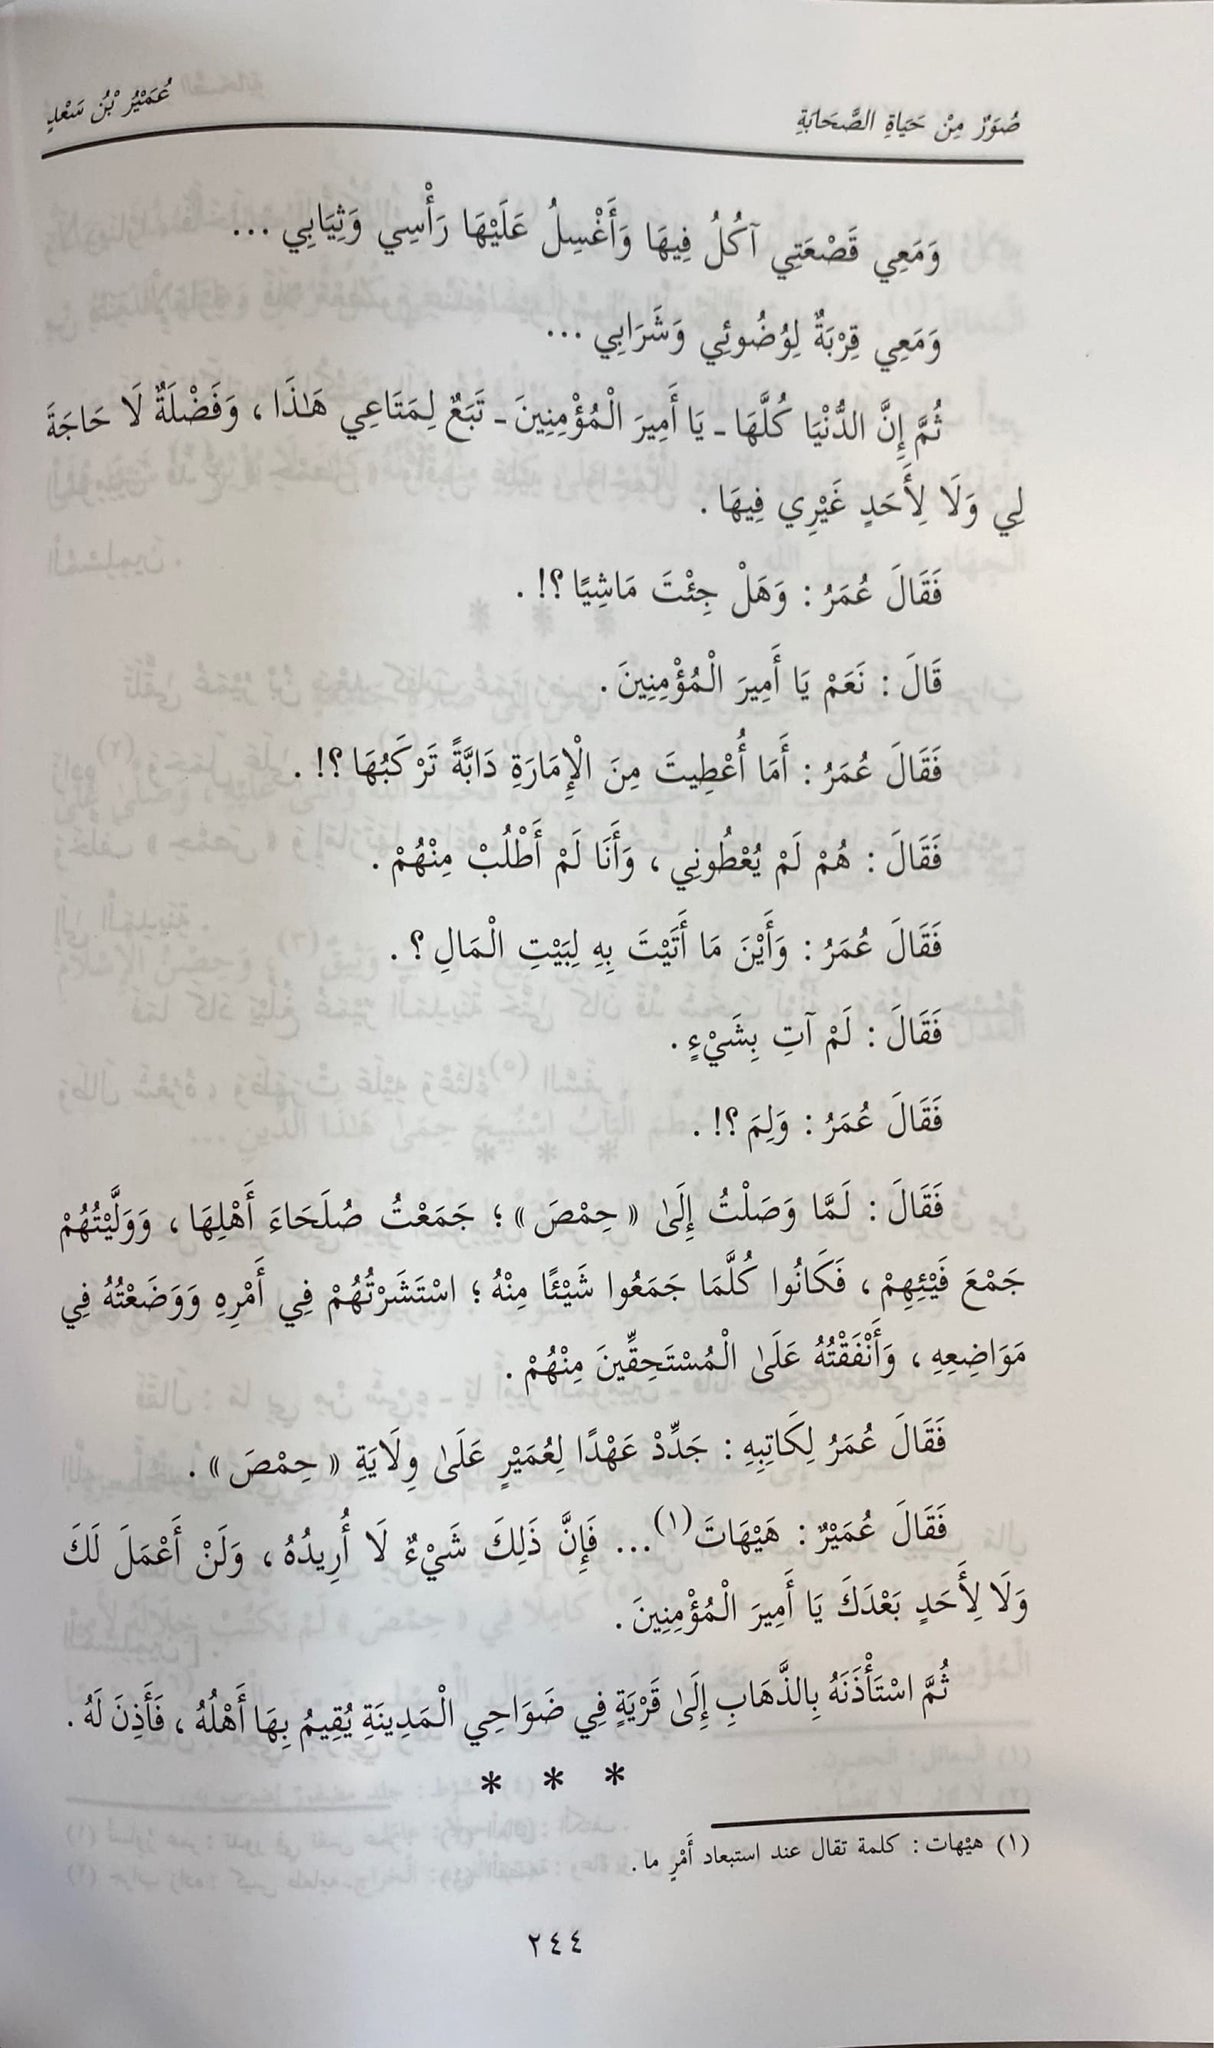 صُوَرٌ مِنْ حَيَاةِ الصَّحَابَةِ
عُمَيْرُ بْنُ سَعْدٍ
وَمَعِي قَصْعَتِي آكُلُ فِيهَا وَأَغْسِلُ عَلَيْهَا رَأْسِي وَثِيَابِي ...
وَمَعِي قِرْبَةٌ لِوُضُوئِي وَشَرَابِي ...
ثُمَّ إِنَّ الدُّنْيَا كُلَّهَا ـ يَا أَمِيرَ الْمُؤْمِنِينَ ـ تَبَعٌ لِمَتَاعِي هَٰذَا ، وَفَضْلَةٌ لَا حَاجَةَ
لِي وَلَا لِأَحَدٍ غَيْرِي فِيهَا .
فَقَالَ عُمَرُ : وَهَلْ جِئْتَ مَاشِيًا ؟! .
قَالَ : نَعَمْ يَا أَمِيرَ الْمُؤْمِنِينَ .
فَقَالَ عُمَرُ : أَمَا أُعْطِيتَ مِنَ الْإِمَارَةِ دَابَّةً تَرْكَبُهَا ؟! .
فَقَالَ : هُمْ لَمْ يُعْطُونِي ، وَأَنَا لَمْ أَطْلُبْ مِنْهُمْ .
فَقَالَ عُمَرُ : وَأَيْنَ مَا أَتَيْتَ بِهِ لِبَيْتِ الْمَالِ ؟ .
فَقَالَ : لَمْ آتِ بِشَيْءٍ .
فَقَالَ عُمَرُ : وَلِمَ ؟! .
فَقَالَ : لَمَّا وَصَلْتُ إِلَىٰ « حِمْصَ » ؛ جَمَعْتُ صُلَحَاءَ أَهْلِهَا ، وَوَلَّيْتُهُمْ
جَمْعَ فَيْئِهِمْ ، فَكَانُوا كُلَّمَا جَمَعُوا شَيْئًا مِنْهُ ؛ اسْتَشَرْتُهُمْ فِي أَمْرِهِ وَوَضَعْتُهُ فِي
مَوَاضِعِهِ ، وَأَنْفَقْتُهُ عَلَىٰ الْمُسْتَحِقِّينَ مِنْهُمْ .
فَقَالَ عُمَرُ لِكَاتِبِهِ : جَدِّدْ عَهْدًا لِعُمَيْرٍ عَلَىٰ وِلَايَةِ « حِمْصَ » .
فَقَالَ عُمَيْرٌ : هَيْهَاتَ (١) ... فَإِنَّ ذَلِكَ شَيْءٌ لَا أُرِيدُهُ ، وَلَنْ أَعْمَلَ لَكَ
وَلَا لِأَحَدٍ بَعْدَكَ يَا أَمِيرَ الْمُؤْمِنِينَ .
ثُمَّ اسْتَأْذَنَهُ بِالذَّهَابِ إِلَىٰ قَرْيَةٍ فِي ضَوَاحِي الْمَدِينَةِ يُقِيمُ بِهَا أَهْلُهُ ، فَأَذِنَ لَهُ .
* * *
(١) هيْهات : كلمة تقال عند استبعاد أَمْرٍ ما .
٢٤٤